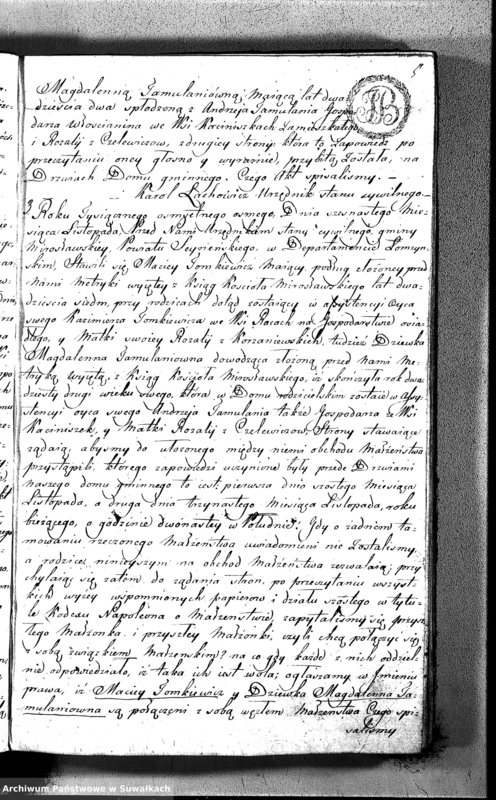 5
Magdalenną Jamulaniówną maiącą lat dwa-
dzieścia dwa spłodzoną z Andrzeja Jamulania Gospo
darza włościanina we Wsi Kaciniszkach zamieszkałego
i Rozalij z Czelewiczow, z drugiey strony; która to zapowiedz po
przeczytaniu oney głośno y wyraźnie, przybitą została, na
Drzwiach Domu gminnego. Czego Akt spisalismy. —
Karol Lachowicz Urzędnik stanu cywilnego.—
3 Roku Tysiącznego osmsetnego osmego, Dnia szesnastego Mie-
siąca Listopada, Przed Nami Urzędnikiem stanu cywilnego, gminy
Mirosławskiey, Powiatu Seyneńskiego, w Departamencie Łomżyń-
skim, Stawili się Maciey Tomkiewicz maiący podług złożoney przed
Nami Metryki wyiętey z Ksiąg Kościoła Mirosławskiego lat dwa-
dzieścia siedm, przy rodzicach dotąd zostaiący w assystencyi Oyca
swego Kazimierza Tomkiewicza we Wsi Racach na Gospodarstwie osia-
dłego, y Matki swoiey Rozalij z Korzaniewskich, tudzież Dziewka
Magdalenna Jamulaniowna dowodząca złożoną przed nami Me-
tryką wyiętą, z Ksiąg Kościoła Mirosławskiego, iż skończyła rok dwu-
dziesty drugi wieku swego, która w Domu rodzicielskim zostaie w Assy-
stencyi oyca swego Andrzeja Jamulania także Gospodarza ze Wsi
Kaciniszek, y Matki Rozalij z Czelewiczow, Strony stawaiące
żądaią, abysmy do ułożonego między niemi obchodu Małżeństwa
przystąpili, którego zapowiedzi uczynione były przede Drzwiami
naszego domu gminnego to iest: pierwsza dnia szóstego Miesiąca
Listopada, a druga dnia trzynastego Miesiąca Listopada, roku
bieżącego, o godzinie dwunastey w Południe; Gdy o żadnem ta-
mowaniu rzeczonego Małżeństwa uwiadomieni nie zostalismy,
a rodzice ninieyszym na obchod Małżeństwa zezwalaią; przy
chylaiąc się zatem do żądania stron, po przeczytaniu wszyst-
kich wyżey wspomnionych papierow i działu szostego w tytu-
le Kodexu Napoleona o Małżeństwie, zapytalismy się przysz-
łego Małżonka, i przyszłey Małżonki, czyli chcą połączyć się
z sobą związkiem Małżeńskim? na co gdy każde z nich oddziel-
nie odpowiedziało, iż taka ich iest wola; ogłaszamy w Imieniu
prawa, iż Maciey Tomkiewicz y Dziewka Magdalenna Ja-
mulaniowna są połączeni z sobą węzłem Małżeństwa Czego spi-
salismy
Archiwum Państwowe w Suwałkach